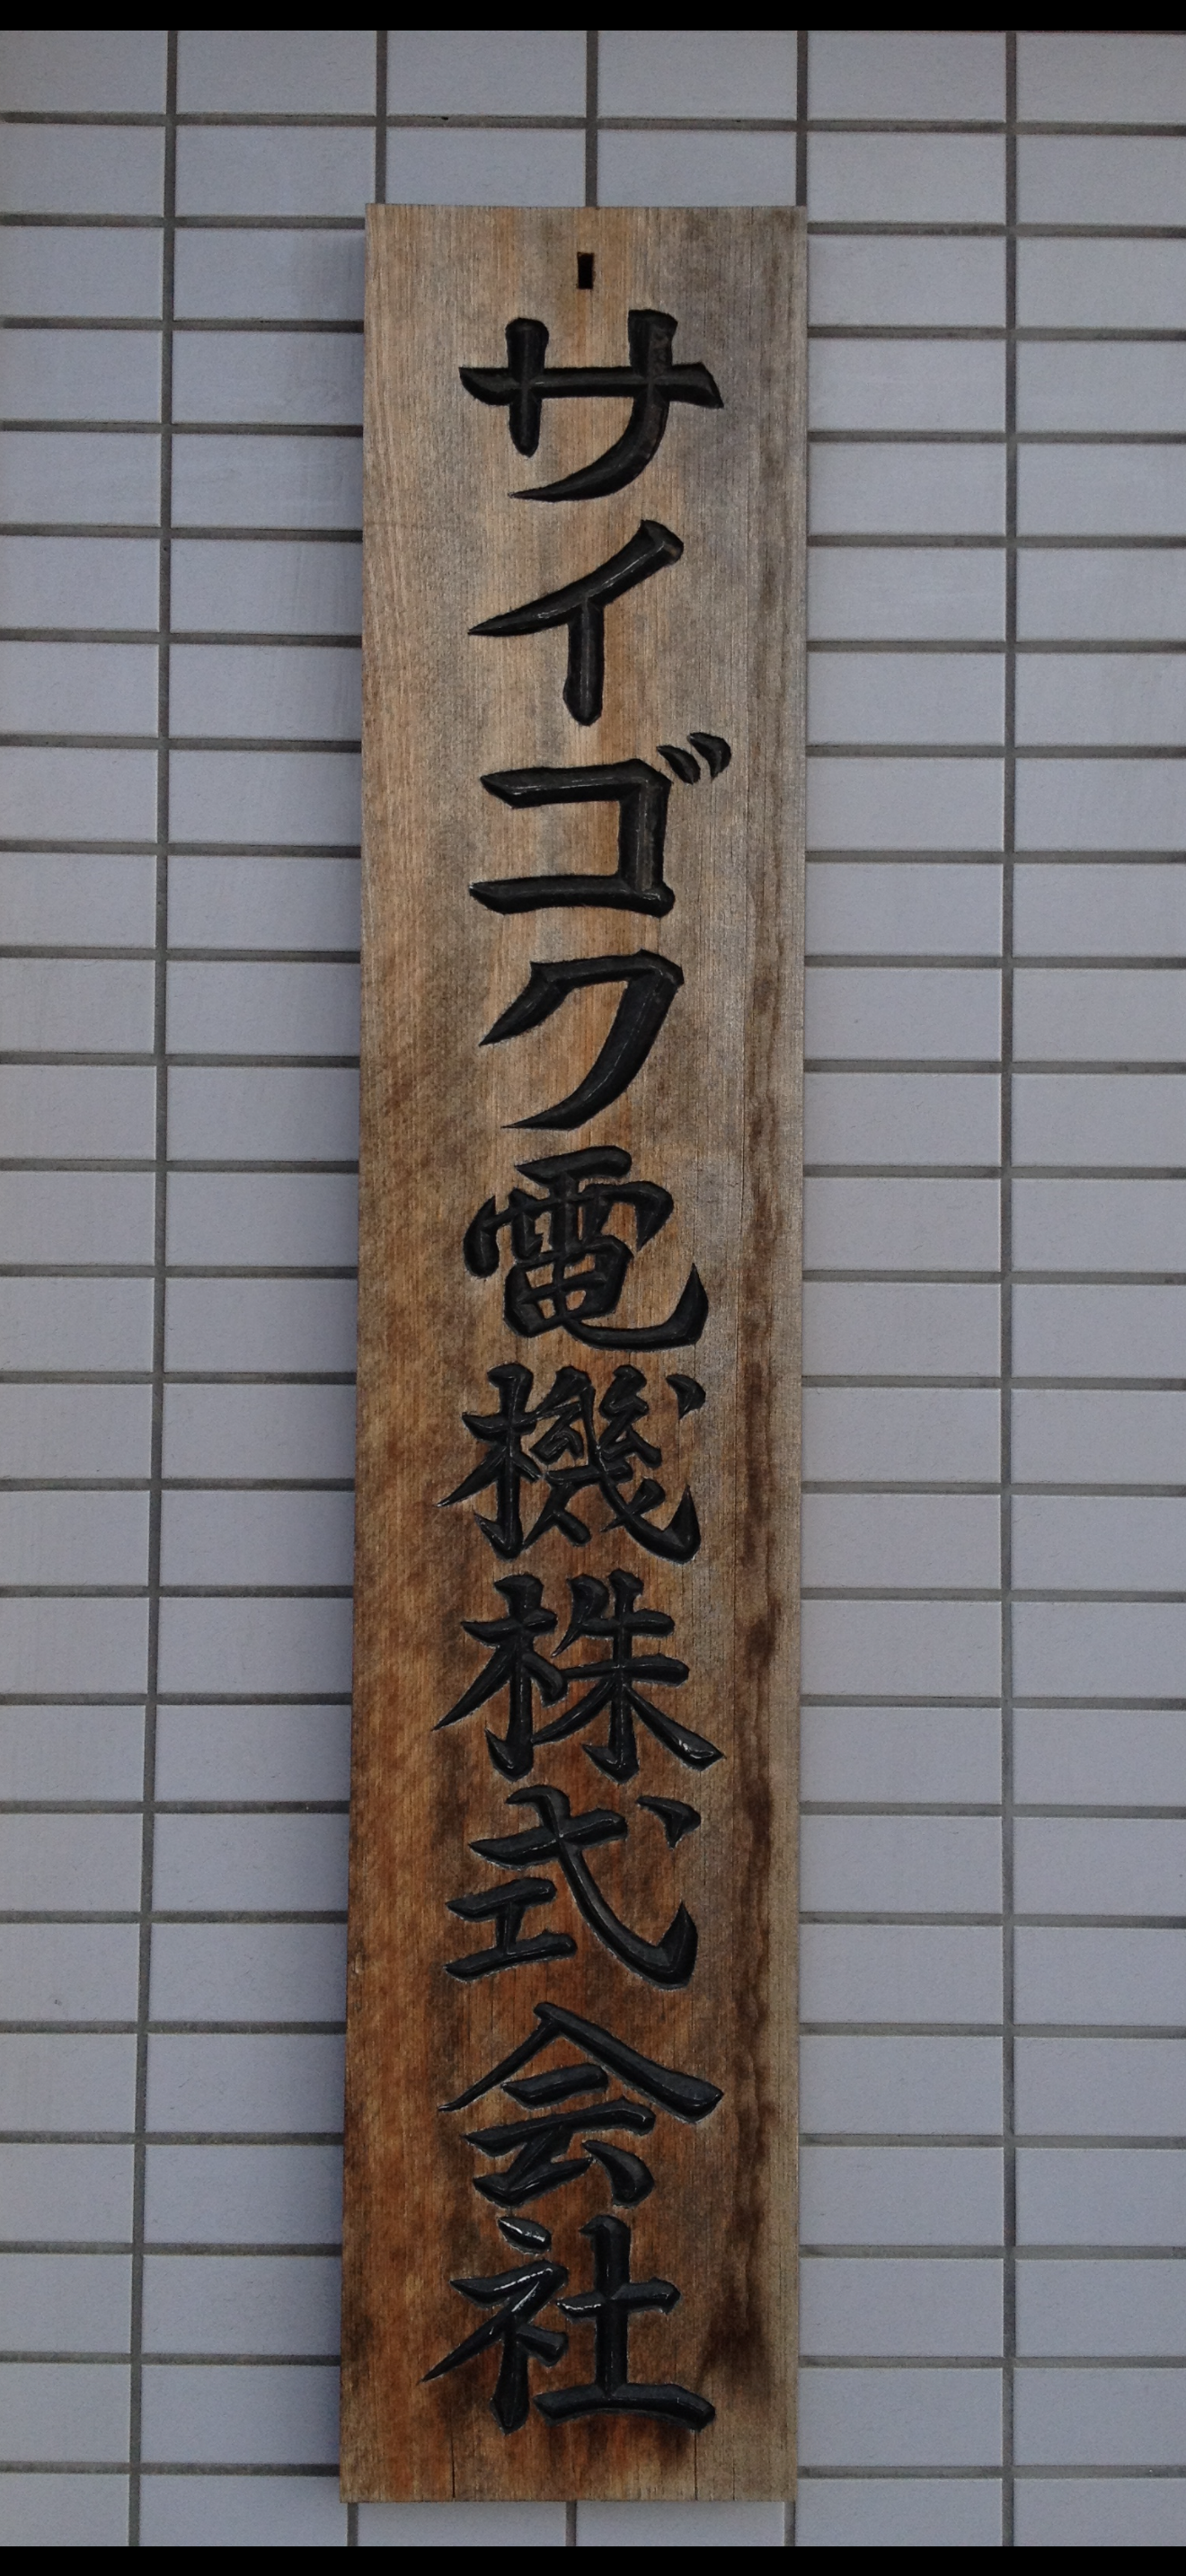 サイゴク電機株式会社